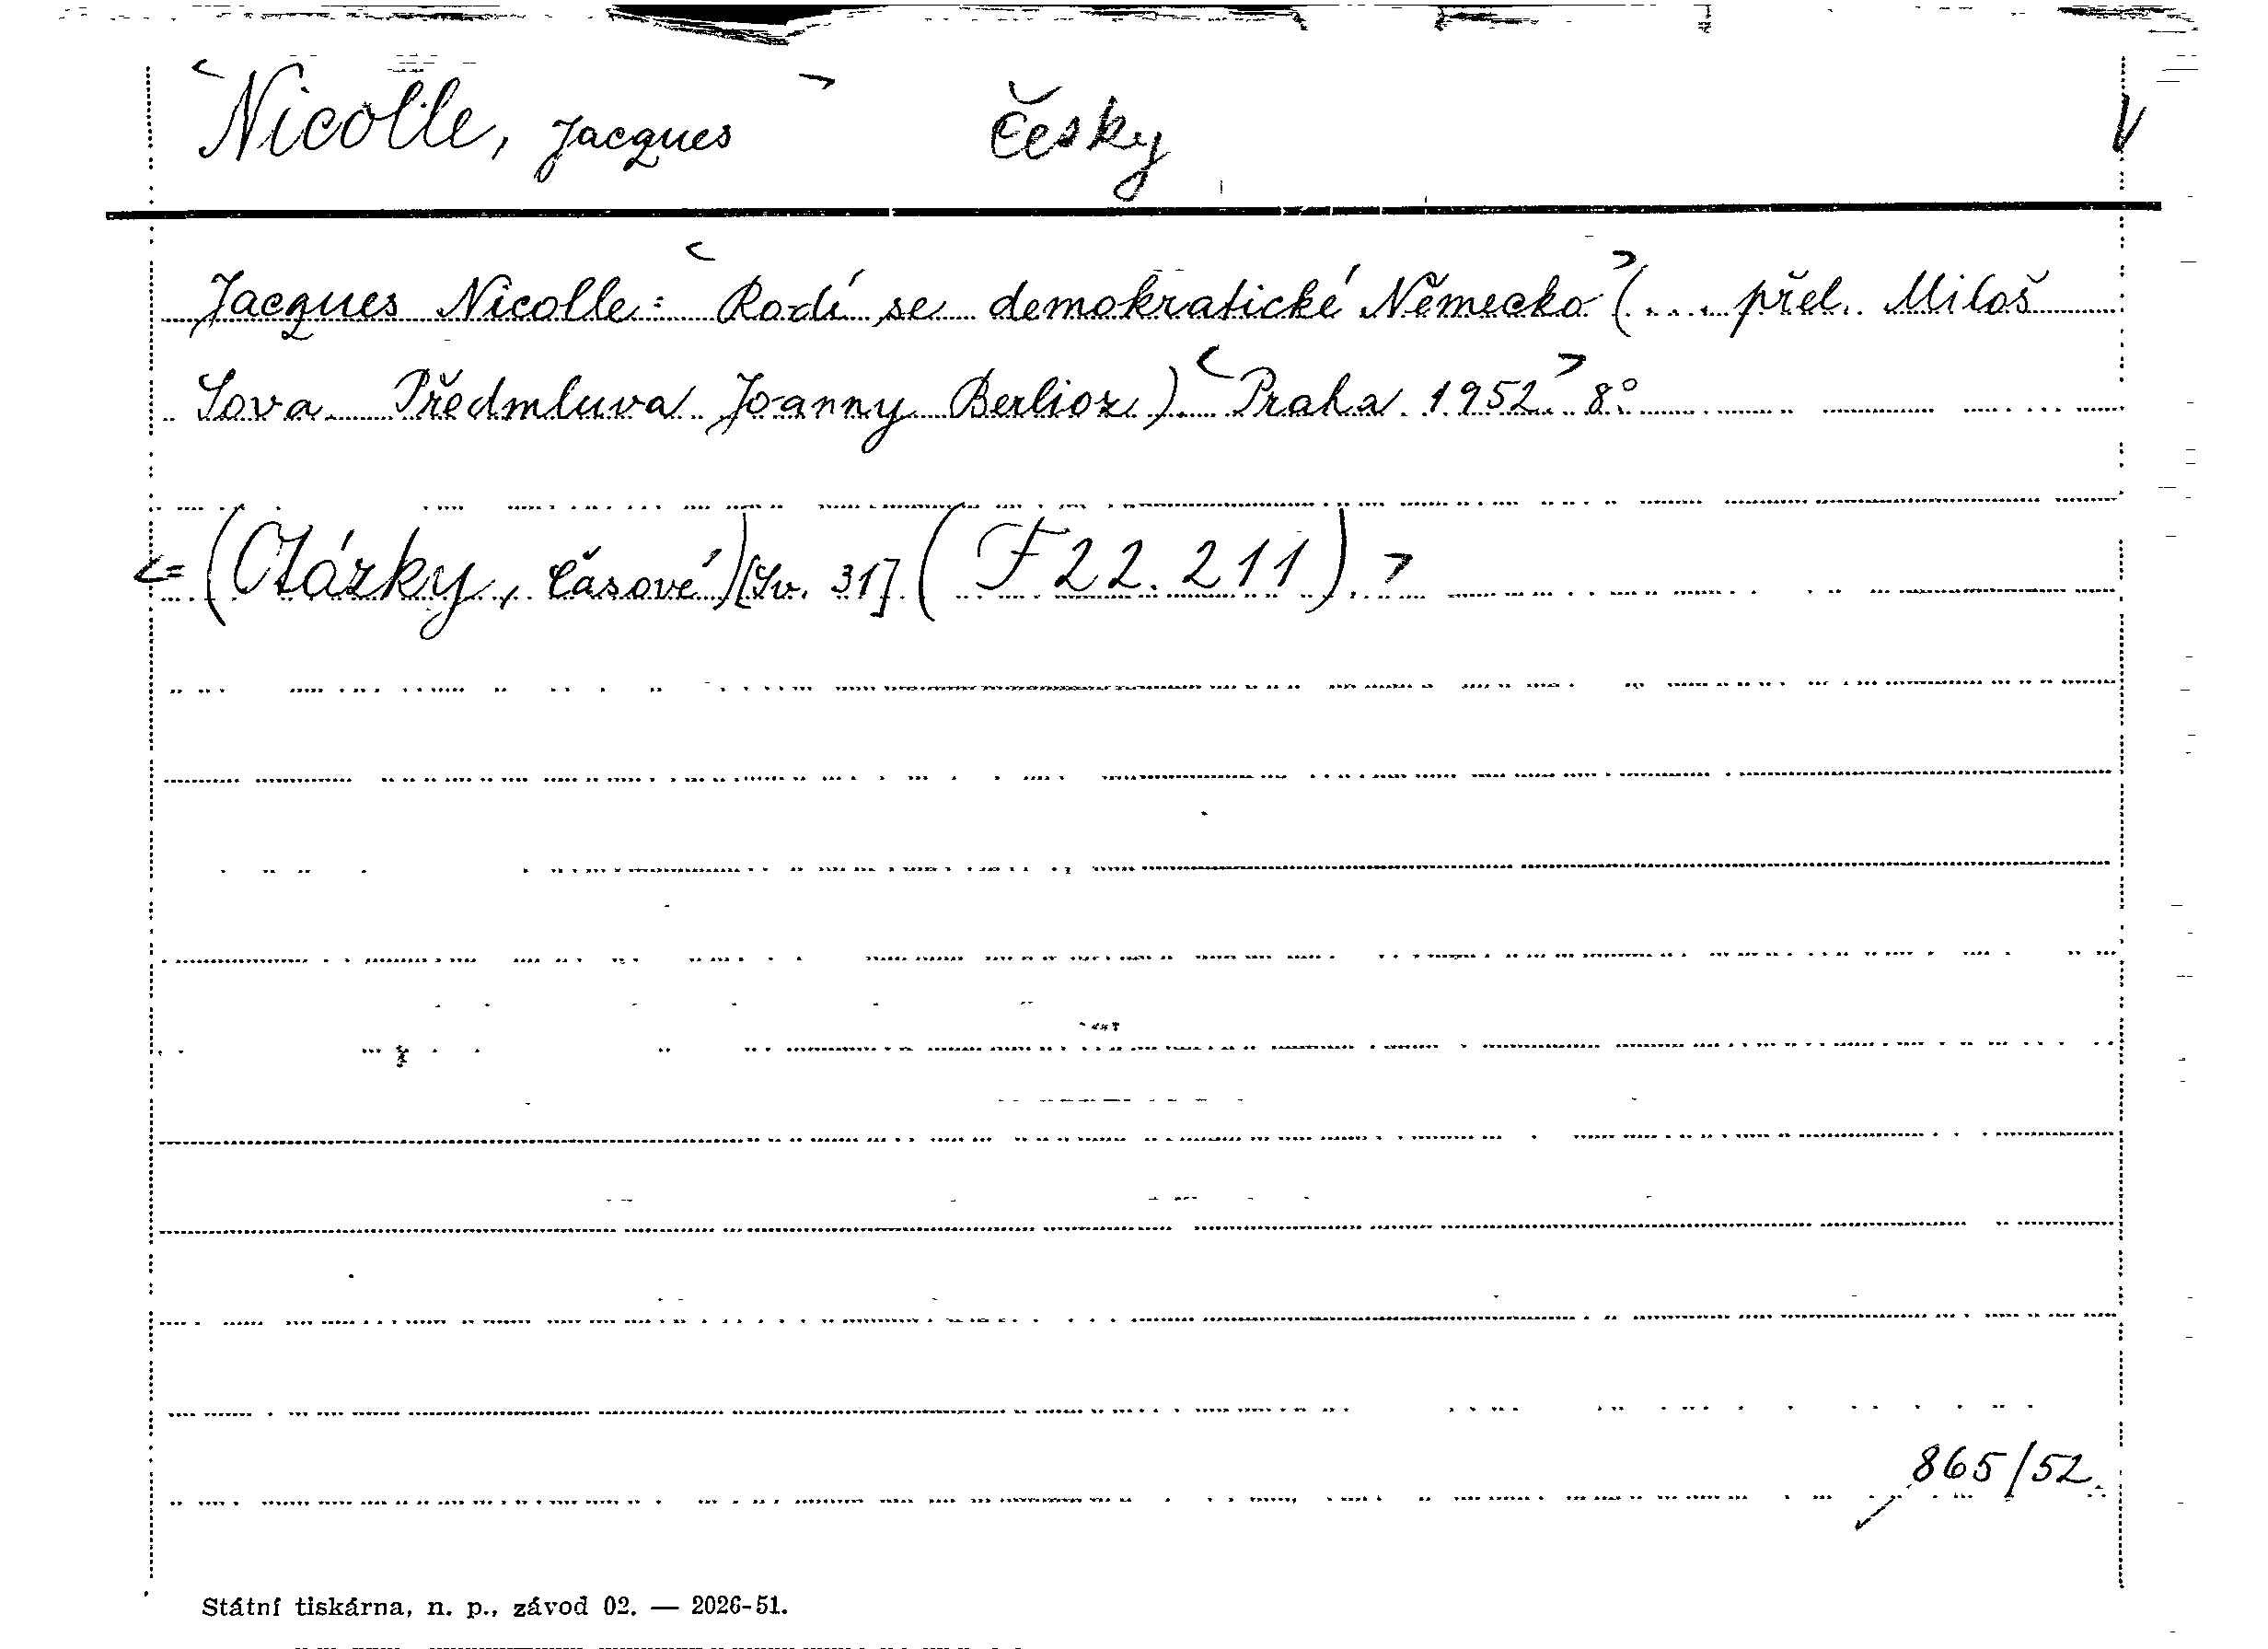 <Nicolle, Jacques> česky V
Jacques Nicolle: <Rodí se demokratické Německo> (... přel. Miloš
Sova Předmluva Joanny Berlioz). <Praha 1952> 8°
<= (Otázky, časové) [Sv. 31] (F 22.211) >
865/52
Státní tiskárna, n. p., závod 02. — 2026-51.